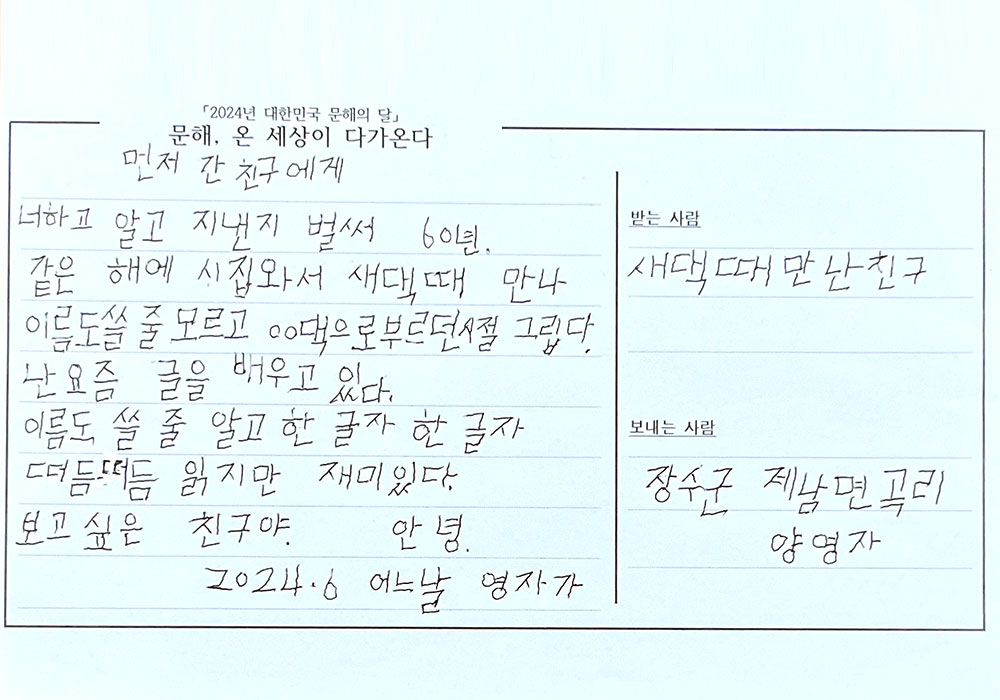 「2024년 대한민국 문해의 달」
문해, 온 세상이 다가온다
먼저 간 친구에게
너하고 알고 지낸지 벌써 60년.
같은 해에 시집와서 새댁때 만나
이름도쓸 줄 모르고 oo댁으로부르던시절 그립다.
난 요즘 글을 배우고 있다.
이름도 쓸 줄 알고 한 글자 한 글자
떠듬떠듬 읽지만 재미있다.
보고 싶은 친구야. 안녕.
2024.6 어느날 영자가
받는 사람
새댁때만난친구
보내는 사람
장수군 제남면곡리
양영자